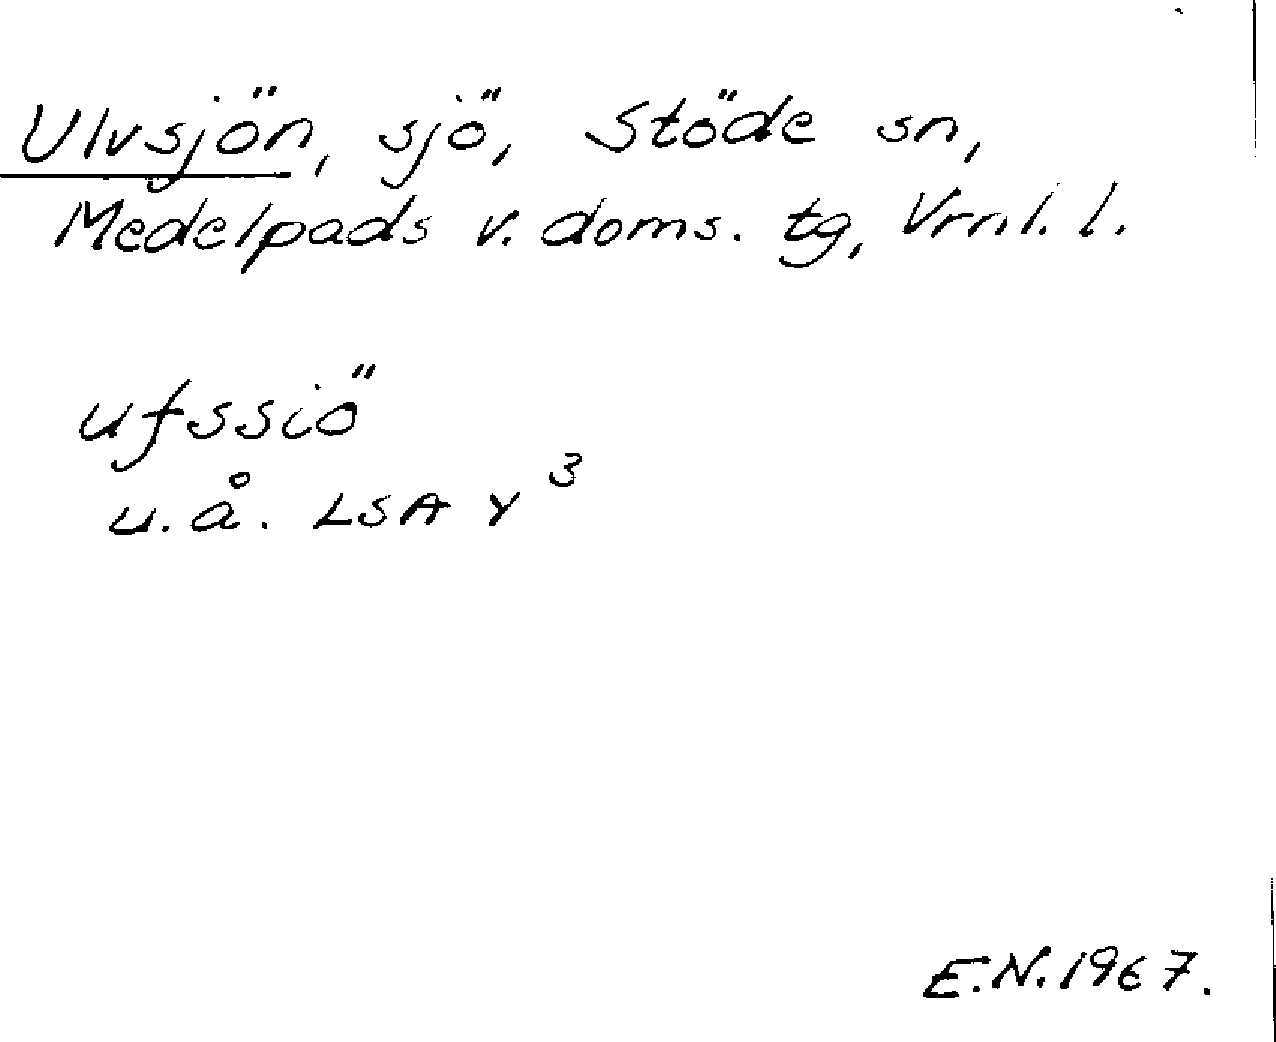 Ulvsjön, sjö, Stöde sn,
Medelpads v. doms. tg, Vrnl. l.
ufssiö
u. å. LSA Y 3
E.N. 1967.